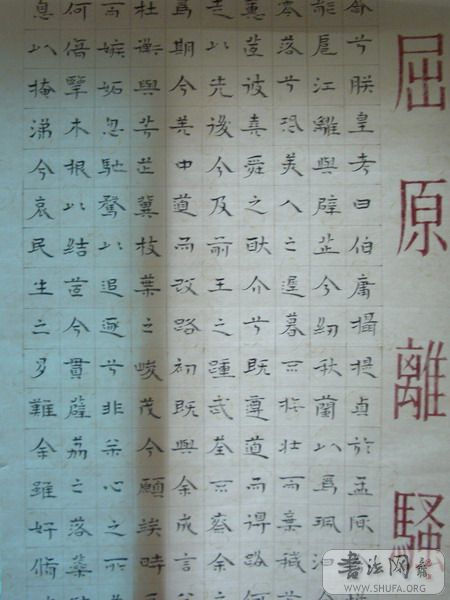 屈原離騷
兮朕皇考曰伯庸攝提貞於孟陬
能扈江離與辟芷兮紉秋蘭以爲珮汩
零落兮恐美人之遲暮不撫壯而棄穢
蕙茝彼堯舜之耿介兮既遵道而得路
走以先後兮及前王之踵武荃不察余
爲期兮羌中道而改路初既與余成言
杜衡與芳芷冀枝葉之峻茂兮願竢時
而嫉妬忽馳騖以追逐兮非余心之所
何傷擥木根以結茝兮貫薜荔之落蘂
息以掩涕兮哀民生之多難余雖好脩
書法网
WWW.SHUFA.ORG